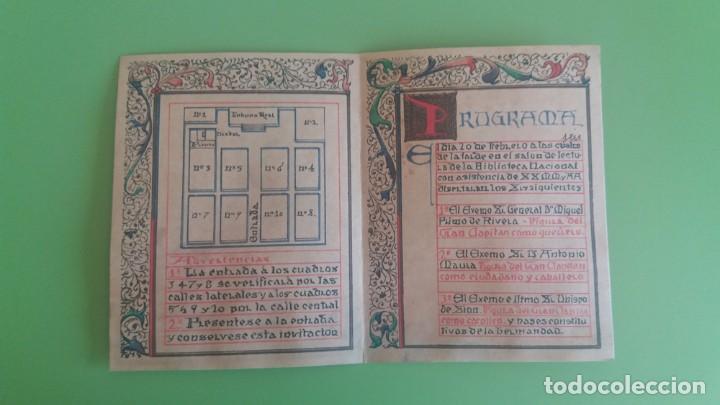 Nº1
Tribuna Real
Nº2
Nº3
Nº5
Nº6
Nº4
Nº7
Nº9
Entrada
Nº10
Nº8
Advertencias
1ª La entrada á los cuadros
3 4 7 y 8 se verificará por las
calles laterales y a los cuadros
5 6 9 y 10 por la calle central
2ª Presentese a la entrada
y conservese esta invitacion
PROGRAMA
seis
El dia 20 de Febrero a las cuatro
de la tarde en el salon de lectu
ra de la Biblioteca Nacional
con asistencia de SS.MM. y AA
disertaran los Sres siguientes
1º El Excmo Sr. General Dn Miguel
Primo de Rivera Figura del
Gran Capitan como guerrero
2º El Excmo Sr. D Antonio
Maura Figura del Gran Capitan
como ciudadano y caballero
3º El Excmo e Iltmo Sr. Obispo
de Sion Figura del Gran Capitan
como catolico y bases constitu
tivas de la hermandad.
todocoleccion